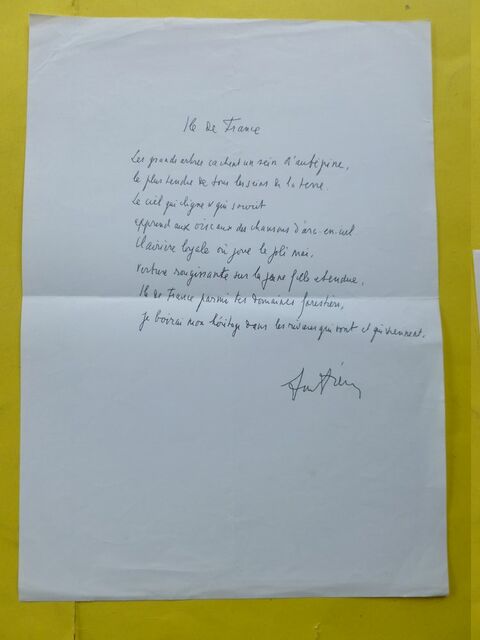 Ile de France
Les grands arbres cachent un sein d'aubépine,
le plus tendre de tous les seins de la terre.
Le ciel qui cligne & qui sourit
apprend aux oiseaux des chansons d'arc-en-ciel
Clairière loyale où joue le joli mai,
verture rougissante sur la jeune fille étendue,
Ile de France parmi tes domaines forestiers,
je boirai mon héritage dans les rivières qui vont et qui viennent.